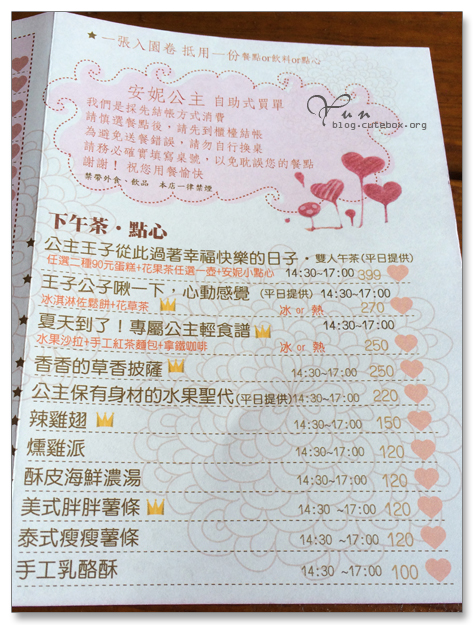 ★一張入園卷 抵用一份餐點or飲料or點心
安妮公主 自助式買單
我們是採先結帳方式消費
請慎選餐點後，請先到櫃檯結帳
為避免送餐錯誤，請勿自行換桌
請務必確實填寫桌號，以免耽誤您的餐點
謝謝！ 祝您用餐愉快
禁帶外食、飲品 本店一律禁煙
Yun
blog.cutebox.org
下午茶・點心
公主王子從此過著幸福快樂的日子・雙人午茶(平日提供)
任選二種90元蛋糕+花果茶任選一壺+安妮小點心 14:30~17:00 399
王子公子啾一下，心動感覺 (平日提供) 14:30~17:00
冰淇淋佐鬆餅+花草茶 冰 or 熱 270
夏天到了！專屬公主輕食譜 14:30~17:00
水果沙拉+手工紅茶麵包+拿鐵咖啡 冰 or 熱 250
香香的草香披薩 14:30~17:00 250
公主保有身材的水果聖代(平日提供)14:30~17:00 220
辣雞翅 14:30~17:00 150
燻雞派 14:30~17:00 120
酥皮海鮮濃湯 14:30~17:00 120
美式胖胖薯條 14:30 ~17:00 120
泰式瘦瘦薯條 14:30 ~17:00 120
手工乳酪酥 14:30 ~17:00 100